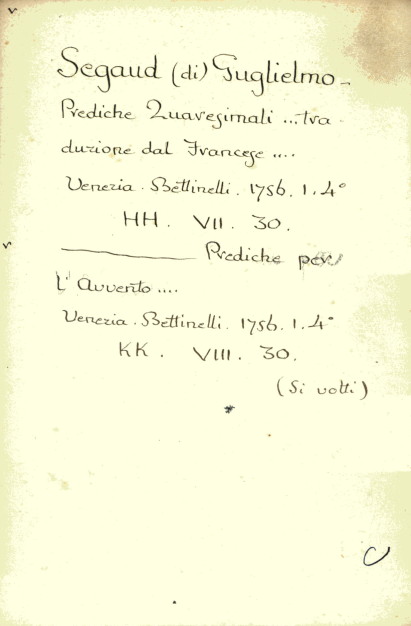 Segaud (di) Guglielmo -
Prediche Quaresimali ... tra -
duzione dal Francese ....
Venezia . Bettinelli . 1756 . 1 . 4°
HH . VII . 30 .
Prediche per
L' Avvento ....
Venezia . Bettinelli . 1756 . 1 . 4°
KK . VIII . 30 .
(Si volti)
*
C